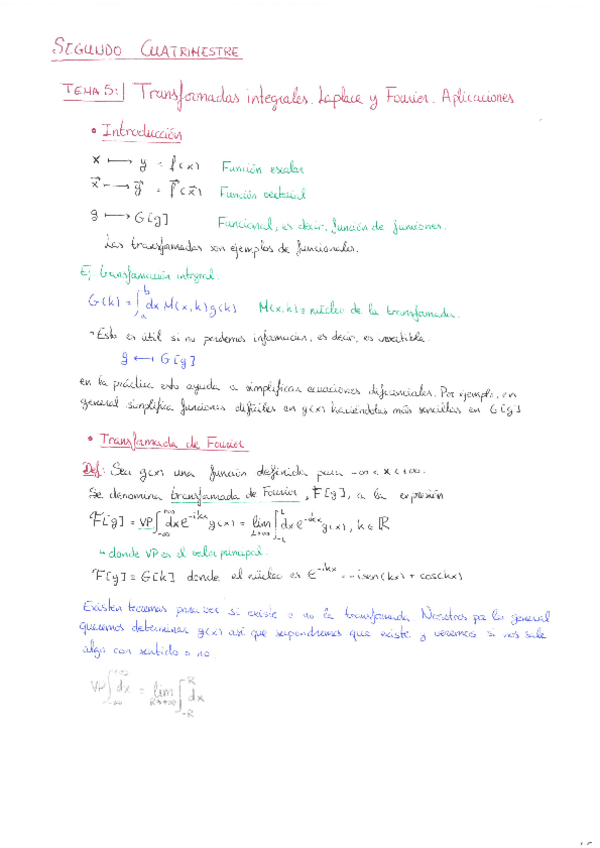 SEGUNDO CUATRIMESTRE
TEMA 5: Transformadas integrales. Laplace y Fourier. Aplicaciones
• Introducción
x ⟼ y = f(x) Función escalar
x⃗ ⟼ y⃗ = f⃗(x⃗) Función vectorial
g ⟼ G[g] Funcional, es decir, función de funciones.
Las transformadas son ejemplos de funcionales.
Ej transformación integral.
G(k) = ∫_a^b dx M(x,k) g(x) M(x,k) = núcleo de la transformada.
Esto es útil si no perdemos información, es decir, es invertible.
g ⟵ G[g]
en la práctica esto ayuda a simplificar ecuaciones diferenciales. Por ejemplo, en
general simplifica funciones difíciles en g(x) haciéndolas más sencillas en G[g]
• Transformada de Fourier
Def: Sea g(x) una función definida para -∞ < x < +∞.
Se denomina transformada de Fourier, F[g], a la expresión
F[g] = VP ∫_{-∞}^{+∞} dx e^{-ikx} g(x) = lim_{L→∞} ∫_{-L}^{L} dx e^{-ikx} g(x), k ∈ ℝ
↳ donde VP es el valor principal.
F[g] = G[k] donde el núcleo es e^{-ikx} = -i sen(kx) + cos(kx)
Existen teoremas para ver si existe o no la transformada. Nosotros por lo general
queremos determinar g(x) así que supondremos que existe y veremos si nos sale
algo con sentido o no.
VP ∫_{-∞}^{+∞} dx = lim_{R→+∞} ∫_{-R}^{R} dx